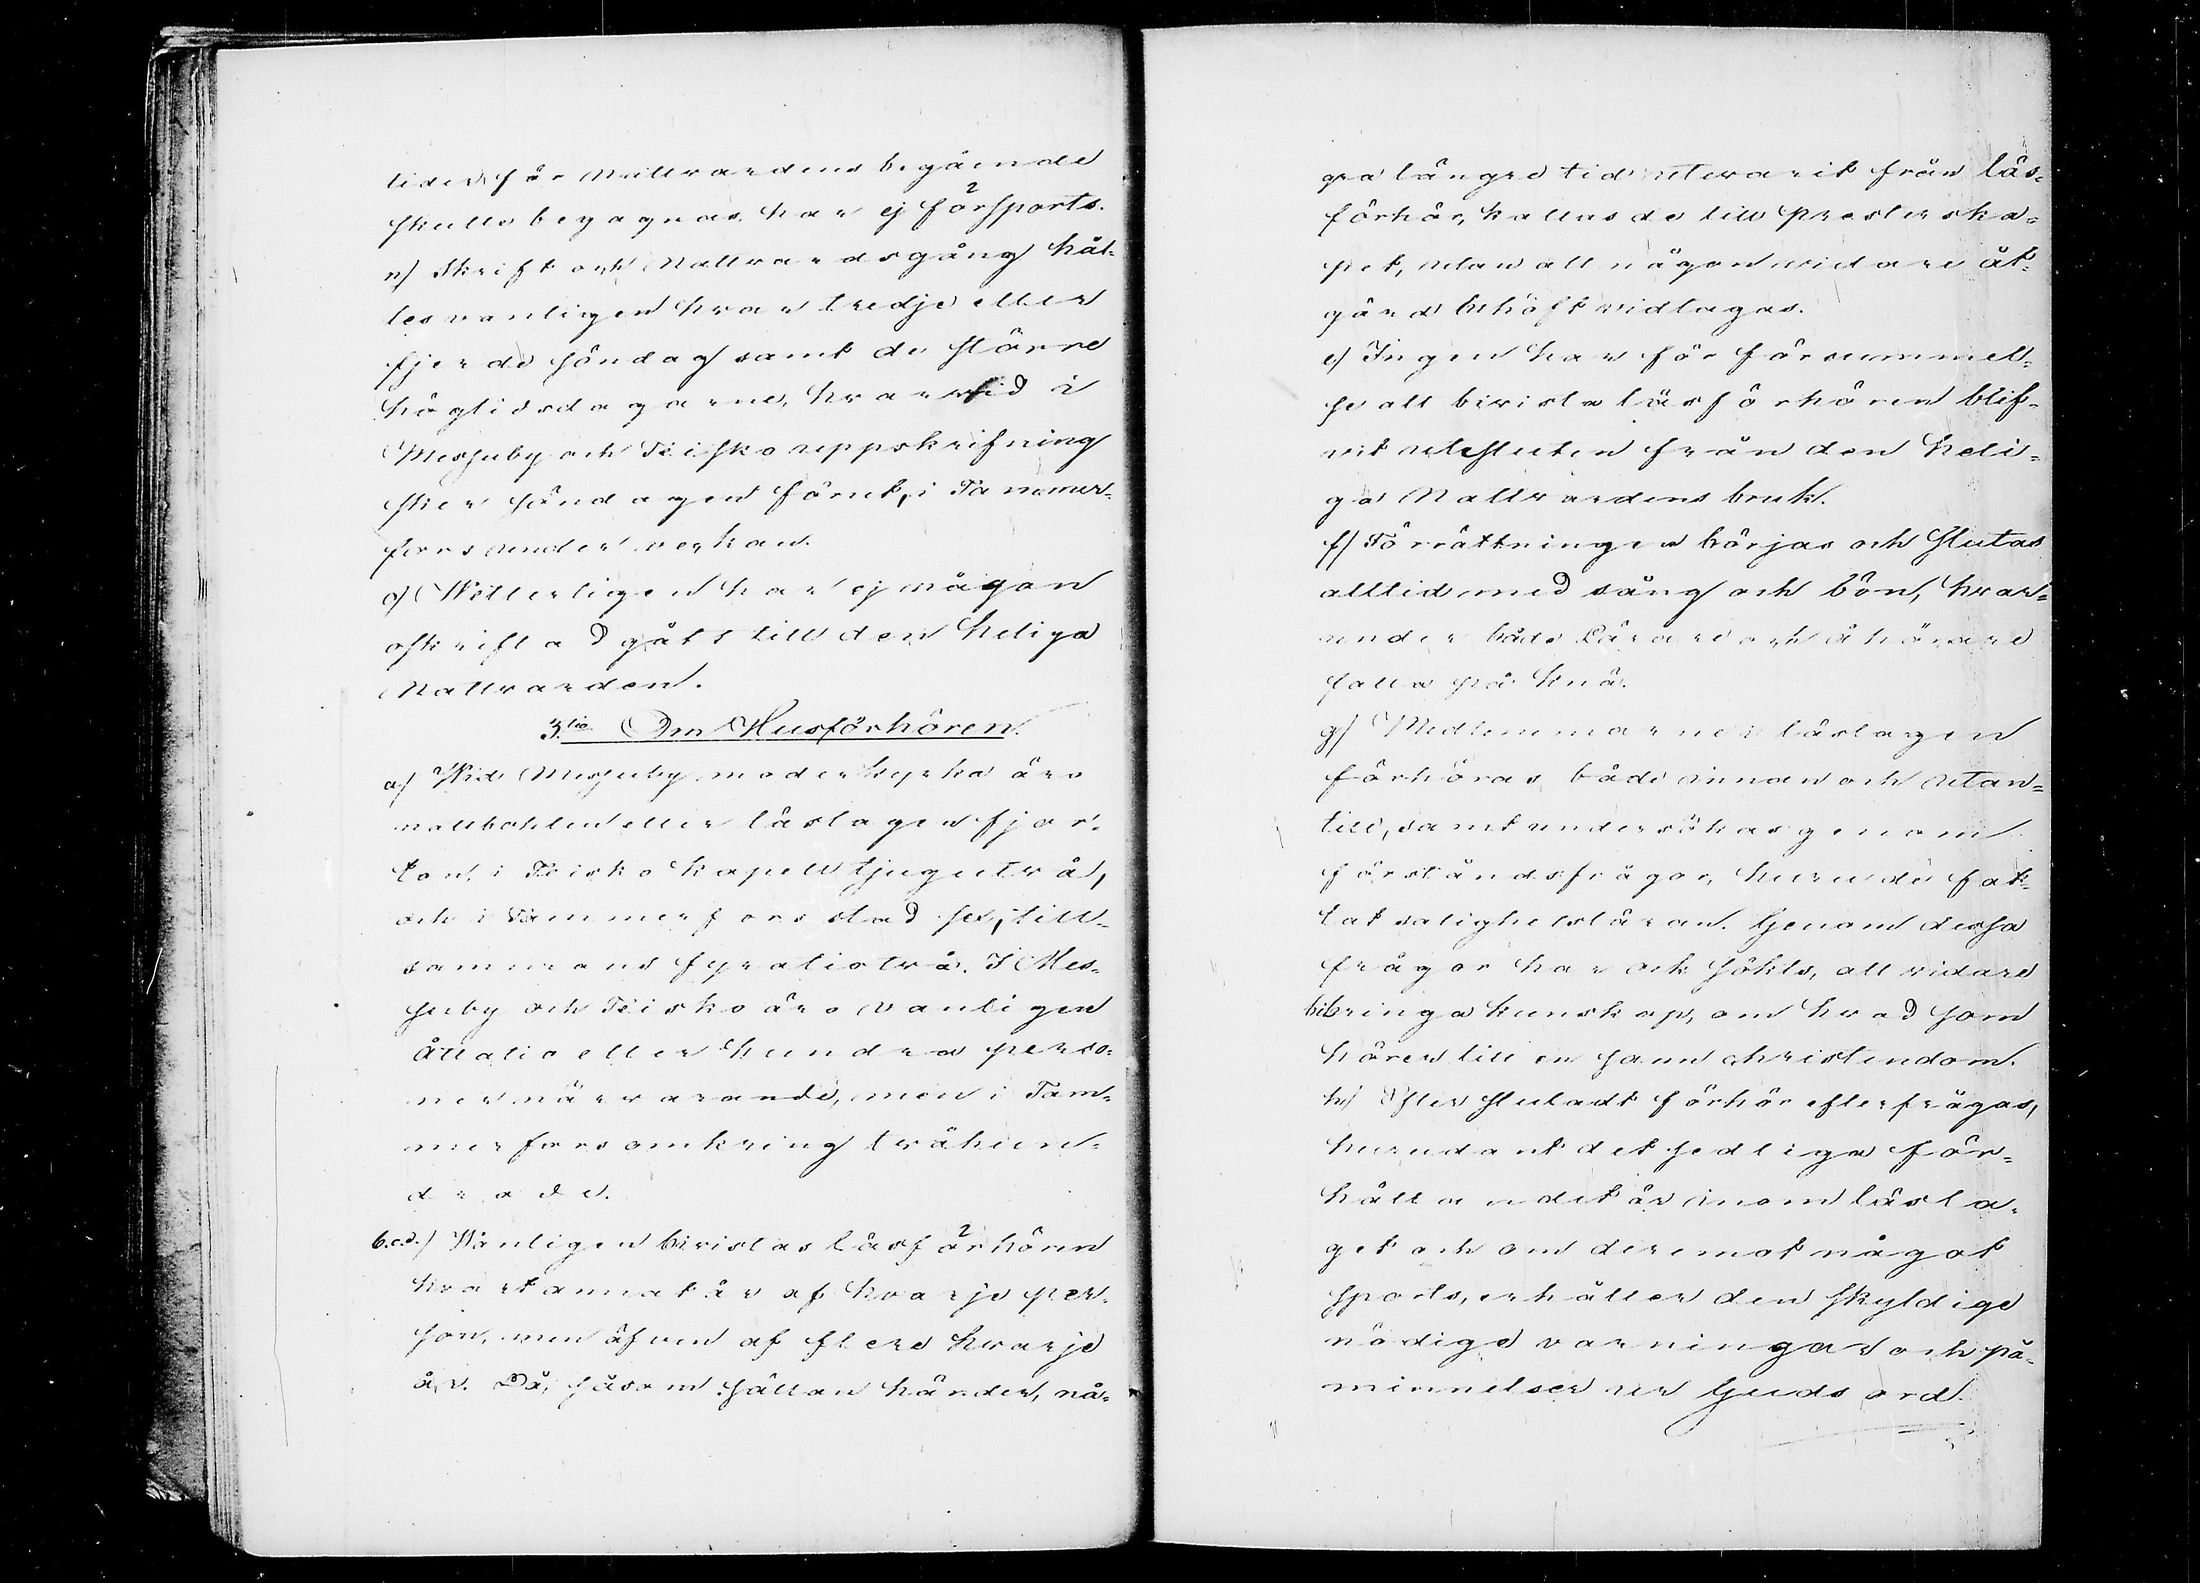 tider för Nattvardens begående
skulle begagnas har ej försports.
n) Skrift och Nattvardsgång hål-
les vanligen hvar tredje eller
fjerde söndag samt de större
högtidsdagarne, hvarvid i
Messuby och Teisko uppskrifning
sker söndagen förut, i Tammer-
fors under veckan.
o) Wetterligen har ej någon
oskriftad gått till den heliga
Nattvarden.
3tio Om Husförhören.
a) Wid Messuby moderkyrka äro
mattbohlen eller läslagen fjor-
ton, i Teisko kapell tjugutvå,
och i Tammerfors stad sex, till-
sammans fyratiotvå. I Mes-
suby och Teisko äro vanligen
åttatio eller hundra perso-
ner närvarande, men i Tam-
merfors omkring tvåhun-
drade.
b.c.d.) Vanligen bivistas läsförhören
hvartannat år af hvarje per-
son, men äfven af flere hvarje
år. Då, såsom sällan händer, nå-
gra längre tid utevarit från läs-
förhör, kallas de till Presterska-
pet, utan att någon vidare åt-
gärd behöft vidtagas.
e) Ingen har för försummel-
se att bivista läsförhören blif-
vit utesluten från den heli-
ga Nattvardens bruk.
f) Förrättningen börjas och slutas
alltid med sång och bön, hvar-
under både Lärare och åhörare
falla på knä.
g) Medlemmarne i läslagen
förhöras både innan och utan-
till, samt undersökas genom
förståndsfrågor, huru de fat-
tat salighetsläran. Genom dessa
frågor har ock sökts, att vidare
bibringa kunskap, om hvad som
hörer till en sann christendom.
h) Efter slutadt förhör efterfrågas,
hurudant det sedliga för-
hållandet är inom läsla-
get och om deremot något
spords, erhåller den skyldige
nödige varningar och på-
minnelser ur Guds ord.